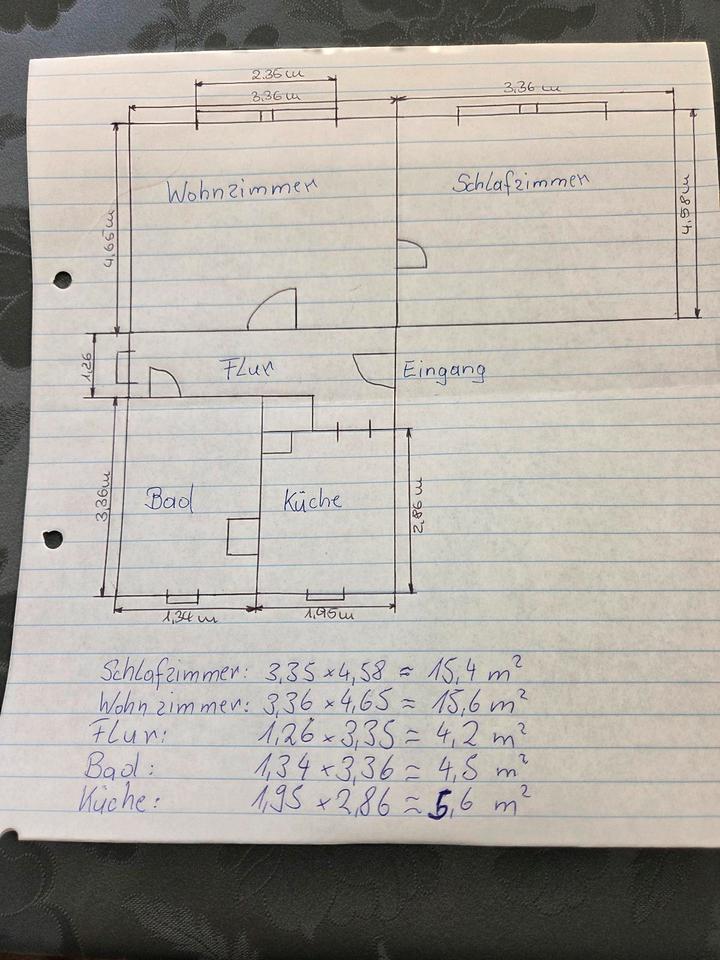 2.36m
3.36m
3.36m
Wohnzimmer
Schlafzimmer
4,65m
4,58m
1,26
Flur
Eingang
3,36m
Bad
Küche
2,86m
1,34m
1,95m
Schlafzimmer: 3,35 × 4,58 ≈ 15,4 m²
Wohnzimmer: 3,36 × 4,65 = 15,6 m²
Flur: 1,26 × 3,35 = 4,2 m²
Bad: 1,34 × 3,36 = 4,5 m²
Küche: 1,95 × 2,86 ≈ 5,6 m²